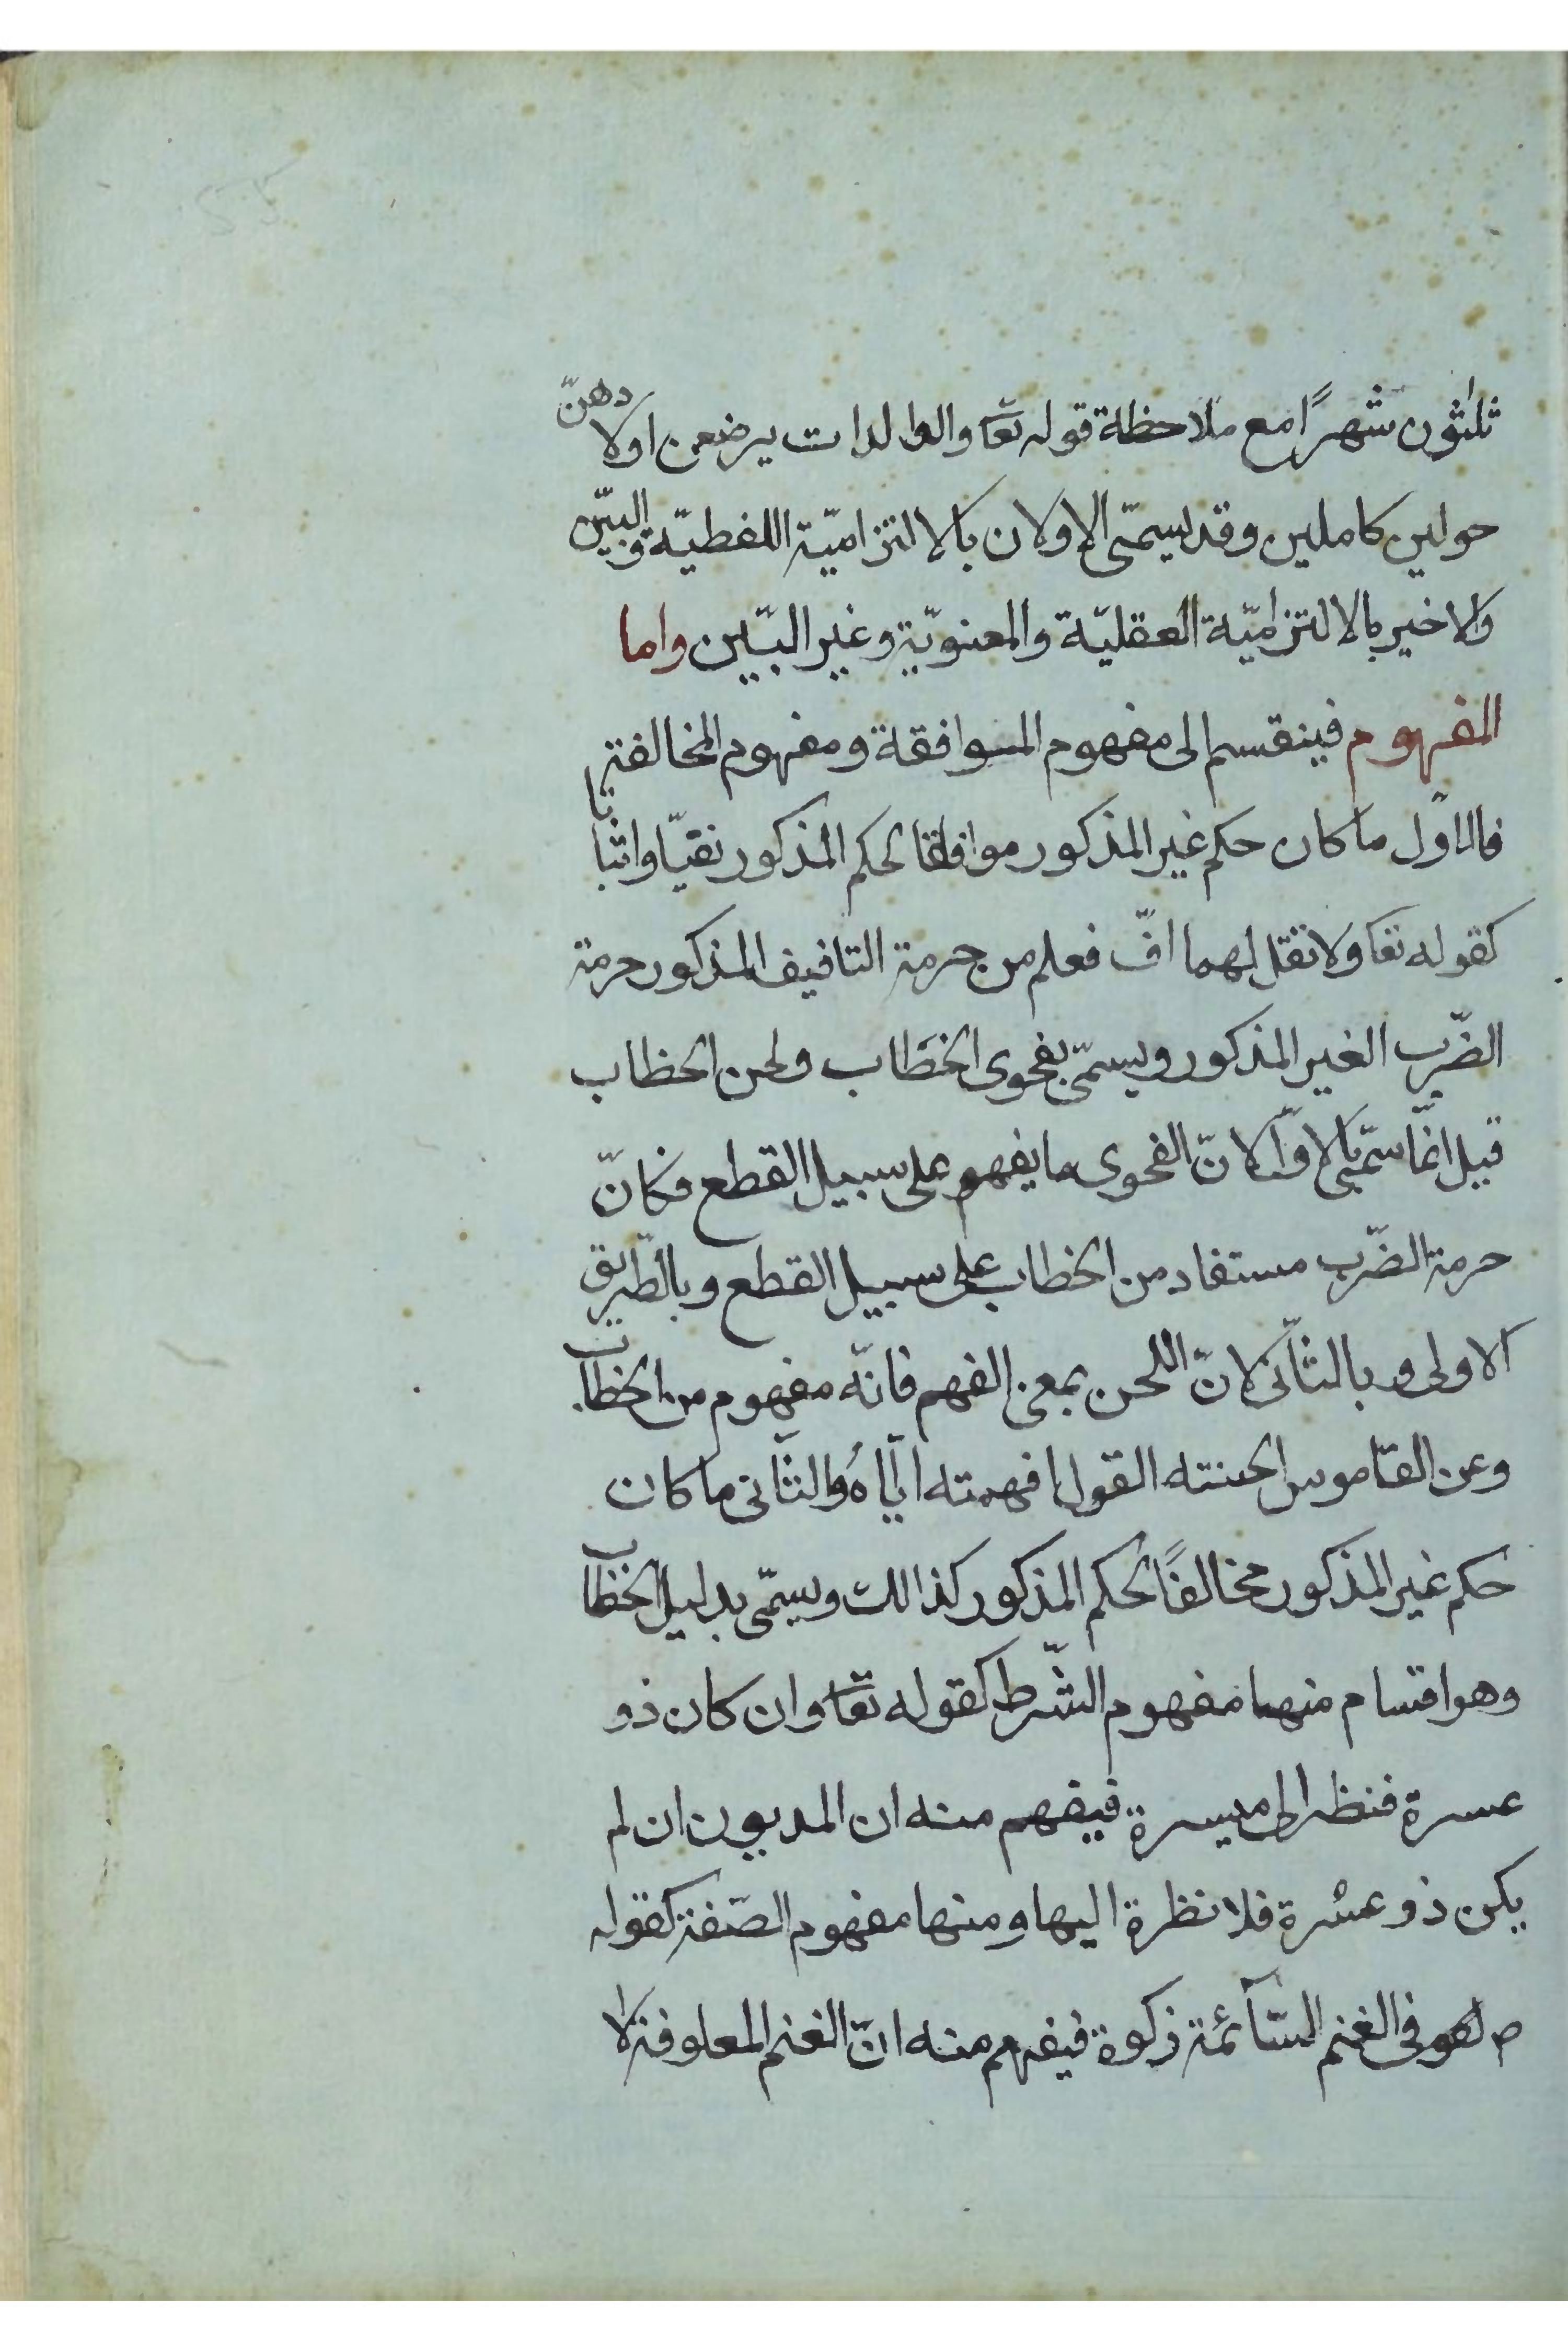 ثلثون شهرًا مع ملاحظة قوله تعا والوالدات يرضعن اولادهنّ
حولين كاملين وقد يسمّى الاولان بالالتزاميّة اللفظيّة والبيّن
والاخير بالالتزاميّة العقليّة والمعنويّة وغير البيّن واما
المفهوم فينقسم الى مفهوم الموافقة ومفهوم المخالفة
فالاوّل ما كان حكم غير المذكور موافقا لحكم المذكور نفيّا واثباتا
كقوله تعا ولا تقل لهما افّ فعلم من حرمة التافيف المذكور حرمة
الضّرب الغير المذكور ويسمّى بفحوى الخطاب ولحن الخطاب
قيل انّما سمّى بالاوّل لانّ الفحوى ما يفهم على سبيل القطع فكانّ
حرمة الضّرب مستفاد من الخطاب على سبيل القطع وبالطّريق
الاولى وبالثّانى لانّ اللحن بمعنى الفهم فانّه مفهوم من الخطاب
وعن القاموس الحنته القول افهمته ايّاهُ والثّانى ما كان
حكم غير المذكور مخالفًا لحكم المذكور كذالك ويسمّى بدليل الخطاب
وهو اقسام منها مفهوم الشّرط كقوله تعا وان كان ذو
عسرة فنظر الى ميسرة فيفهم منه ان المديون ان لم
يكن ذو عسرة فلا نظرة اليها ومنها مفهوم الصّفة كقوله
ص فى الغنم السّآئمة زكوة فيفهم منه انّ الغنم المعلوفة لا